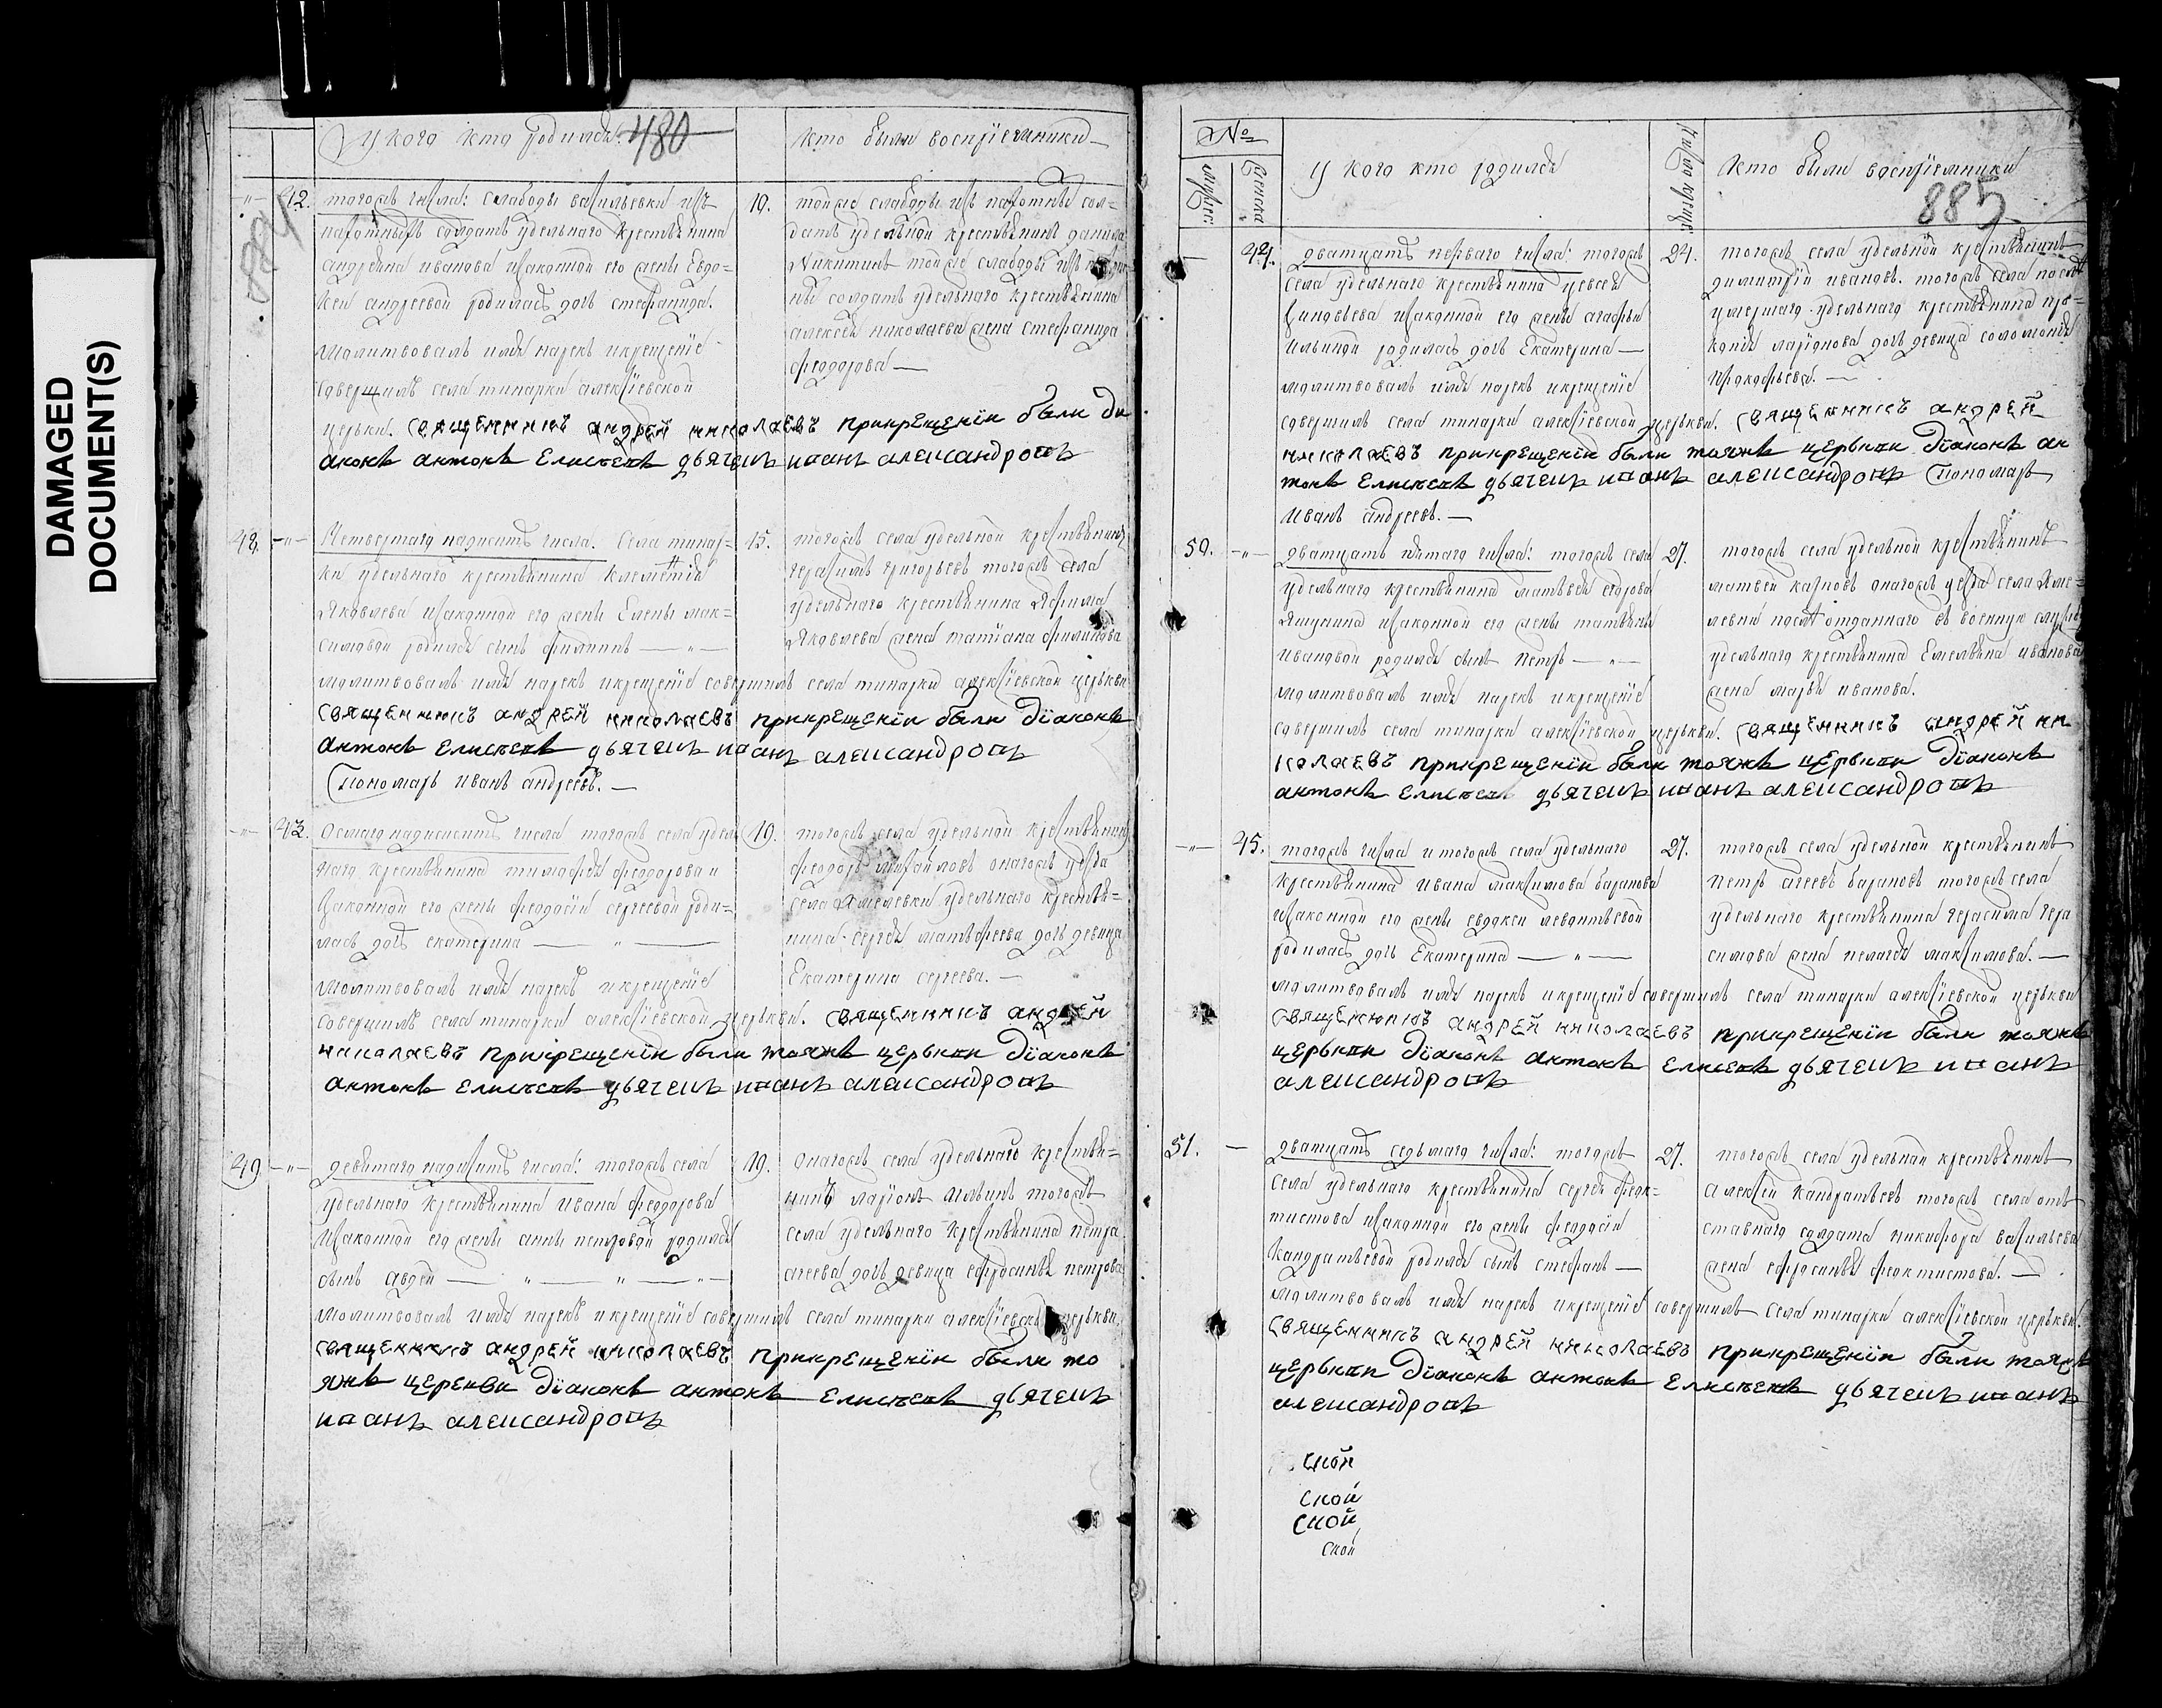 DAMAGED
DOCUMENT(S)
У кого кто родился
480
кто были воспріемники
884
42.
тогожъ числа: слабоды васильевки изъ
пахотныхъ солдатъ удельнаго крестьянина
андреяна иванова изаконной его жены Евдо=
кеи андреевой родилась дочь стефанида.
молитвовалъ имя нарекъ икрещеніе
совершилъ села тинарки алексіевской
церькви. священникъ андрей николаевъ прикрещеніи были ди
аконъ антонъ Елисеевъ дьячекъ иванъ александровъ
19.
тойже слабоды изъ пахотныхъ сол=
датъ удельной крестьянинъ данила
Никитинъ тойже слабоды изъ
солдатъ удельнаго крестьянина
алексея николаева жена стефанида
феодорова
48.
Четвертаго надесять числа. Села тинар=
ки удельнаго крестьянина Клементія
Яковлева изаконной его жены Елены мак=
симовой родился сынъ филиппъ
молитвовалъ имя нарекъ икрещеніе совершилъ села тинарки алексіевской церькви
священникъ андрей николаевъ прикрещеніи были діаконъ
антонъ Елисеевъ дьячекъ иванъ александровъ
Пономарь иванъ андреевъ.
15.
тогожъ села удельной крестьянинъ
герасимъ григорьевъ тогожъ села
удельнаго крестьянина
Яковлева жена татіана филипова
43.
Осмаго надесять числа тогожъ села удель
наго крестьянина тимофея феодорова и
Законной его жены феодосіи сергеевой роди=
лась дочь екатерина
молитвовалъ имя нарекъ икрещеніе
совершилъ села тинарки алексіевской церькви. священникъ андрей
николаевъ прикрещеніи были тояжъ церькви діаконъ
антонъ Елисеевъ дьячекъ иванъ александровъ
19.
тогожъ села удельной крестьянинъ
феодоръ михайловъ онагожъ уезда
села удельнаго крестья=
нина сергея матфеева дочь девица
Екатерина сергеева.
49
девятаго надесять числа: тогожъ села
удельнаго крестьянина ивана феодорова
изаконной его жены анны петровой родился
сынъ авдей
молитвовалъ имя нарекъ икрещеніе совершилъ села тинарки алексіевской церькви.
священникъ андрей николаевъ прикрещеніи были то
яжъ церкви діаконъ антонъ Елисеевъ дьячекъ
иванъ александровъ
19.
онагожъ села удельнаго крестья=
нинъ ларіонъ Ильинъ тогожъ
села удельнаго крестьянина петра
агеева дочь девица ефросинья петрова
№
У кого кто родился
кто были воспріемники
885
44.
дватцать перваго числа: тогожъ
села удельнаго крестьянина евсея
Зиновьева изаконной его жены агафьи
ильиной родилась дочь Екатерина
молитвовалъ имя нарекъ икрещеніе
совершилъ села тинарки алексіевской церькви. священникъ андрей
николаевъ прикрещеніи были тояжъ церькви діаконъ ан
тонъ Елисеевъ дьячекъ иванъ александровъ Пономарь
иванъ андреевъ.
24.
тогожъ села удельной крестьянинъ
димитрій ивановъ. тогожъ села после
умершаго удельнаго крестьянина про=
копія ларіонова дочь девица соломонія
Прокофьева.
50.
дватцать пятаго числа: тогожъ села
удельнаго крестьянина матвея егорова
Япунина изаконной его жены татьяны
ивановой родился сынъ петръ
молитвовалъ имя нарекъ икрещеніе
совершилъ села тинарки алексіевской церькви. священникъ андрей ни
колаевъ прикрещеніи были тояжъ церькви діаконъ
антонъ Елисеевъ дьячекъ иванъ александровъ
27.
тогожъ села удельной крестьянинъ
матвей карповъ онагожъ уезда села Яме=
левки после отданнаго въ военную службу
удельнаго крестьянина Емельяна иванова
жена марья иванова.
45.
тогожъ числа итогожъ села удельнаго
крестьянина ивана максимова баранова
изаконной его жены евдокеи леонтьевой
родилась дочь Екатерина
молитвовалъ имя нарекъ икрещеніе совершилъ села тинарки алексіевской церькви
священникъ андрей николаевъ прикрещеніи были тояжъ
церькви діаконъ антонъ Елисеевъ дьячекъ иванъ
александровъ
27.
тогожъ села удельной крестьянинъ
петръ агеевъ барановъ тогожъ села
удельнаго крестьянина герасима гера
симова жена пелагея максимова.
51.
дватцать седьмаго числа: тогожъ
села удельнаго крестьянина сергея феок=
тистова изаконной его жены феодосіи
кандратьевой родился сынъ стефанъ
молитвовалъ имя нарекъ икрещеніе совершилъ села тинарки алексіевской церькви.
священникъ андрей николаевъ прикрещеніи были тояжъ
церькви діаконъ антонъ Елисеевъ дьячекъ иванъ
александровъ
27.
тогожъ села удельной крестьянинъ
алексей кандратьевъ тогожъ села отъ
ставнаго солдата никифора васильева
жена ефросинья феоктистова.
ской
ской
ской
ской